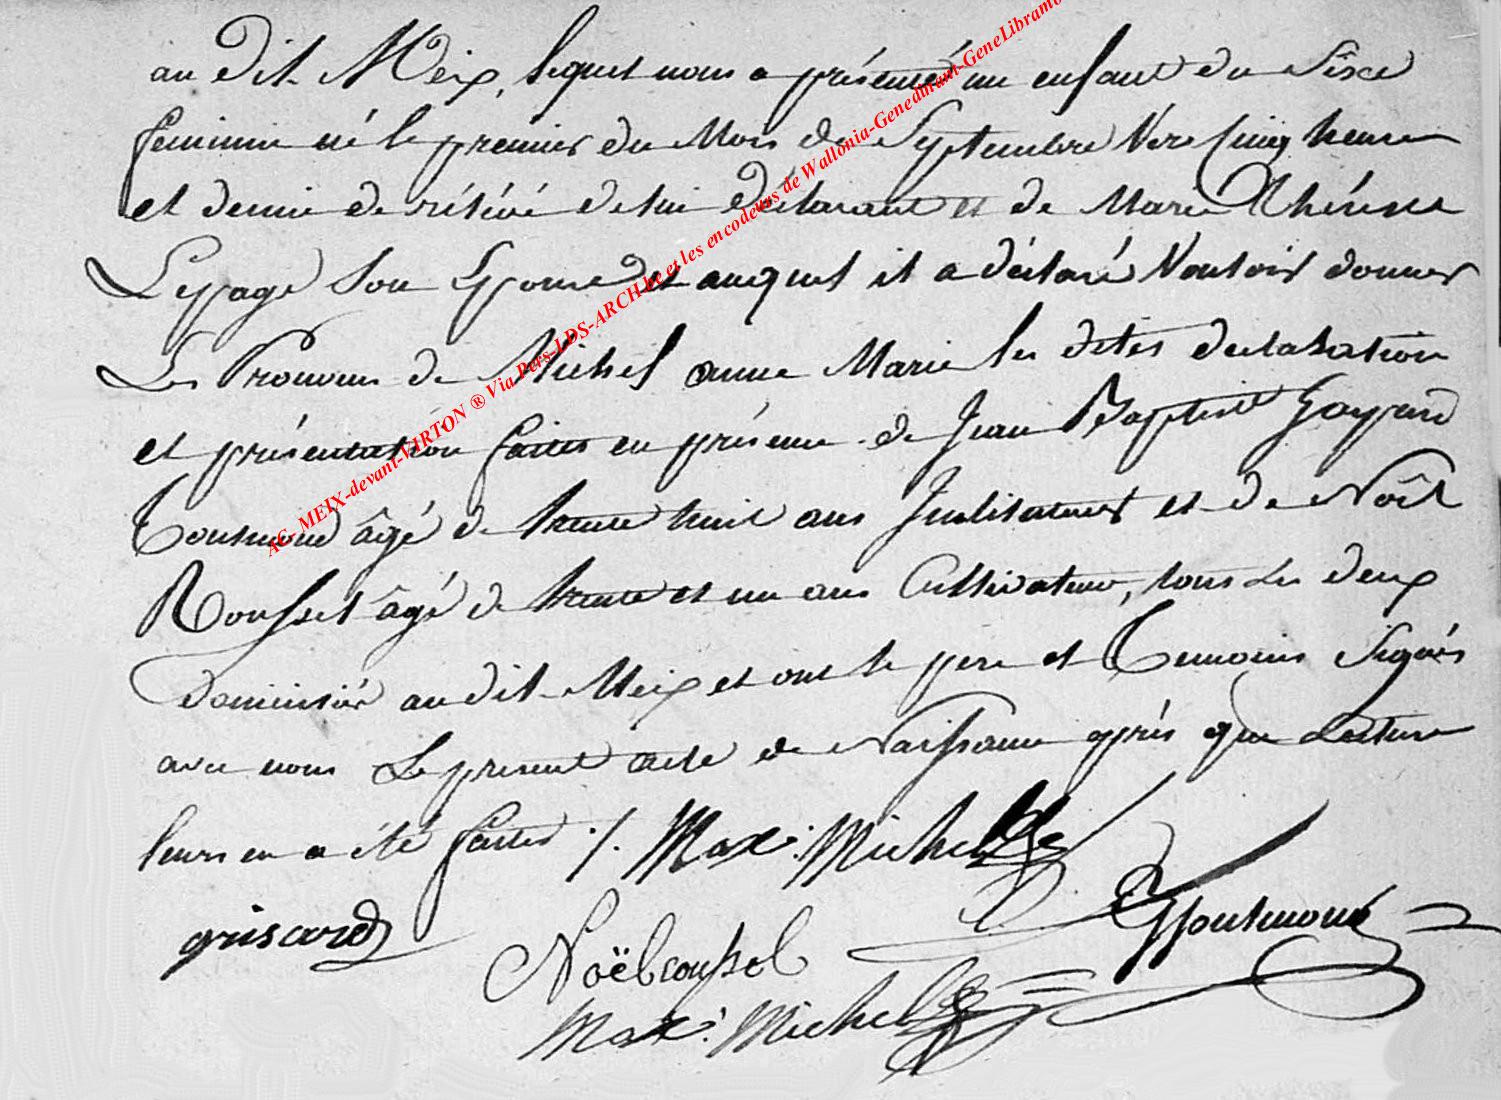 au dit Meix, lequel nous a présenté un enfant du Sèxe
feminin né le premier du Mois de Septembre Vers Cinq heures
et demie de rélévé de lui Déclarant et de Marie Thérèse
Lepage son Epouse et auquel il a déclaré Vouloir donner
Les Prenoms de Michel anne Marie les dites declaration
et présentation faites en présence de Jean Baptiste
âgé de trente huit ans Institateur et de Noêl
Roussel âgé de trente et un ans Cultivateur, tous Les deux
domiciliés au dit Meix et ont le pere et Temoins Signés
avec nous Le present acte de Naissance après que Lecture
leurs en a été faites ./. Max: Michel
griscard
Noëlroussel
Max: Michel
AC_MEIX-devant-VIRTON ® Via Pers-LDS-ARCH.be et les encodeurs de Wallonia-Genedinant-GeneLibramo